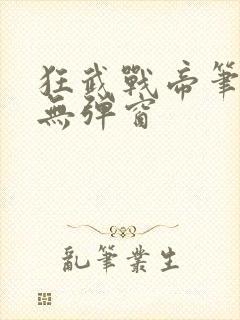 狂武戰帝筆
無彈窗
亂筆叢生